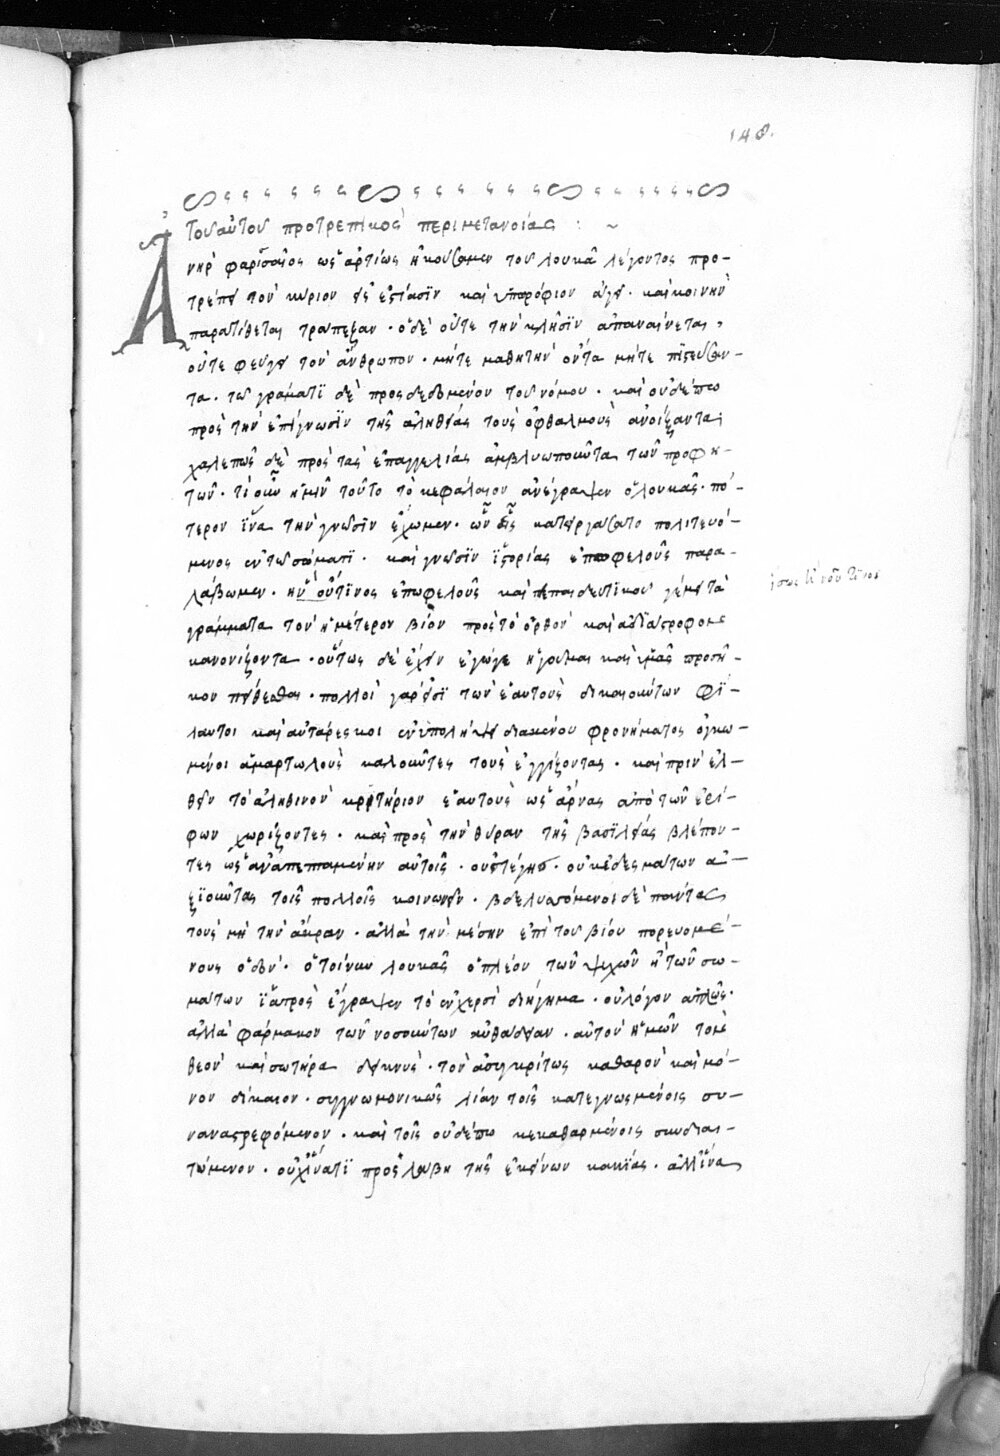 148.
Τοῦ αὐτοῦ προτρεπτικὸς περὶ μετανοίας : ~
Ἀνὴρ φαρισαῖος ὡς ἀρτίως ἠκούσαμεν τοῦ λουκᾶ λέγοντος προ-
τρέπει τὸν κύριον εἰς ἑστίασϊν καὶ ὑπωρόφιον ἄγει. καὶ κοινὴν
παρατίθεται τράπεζαν. ὁ δὲ οὔτε τὴν κλῆσϊν ἀπαναίνεται,
οὔτε φεύγει τὸν ἄνθρωπον. μήτε μαθητὴν ὄντα μήτε πϊστεύσαν-
τα. τῶ γράμματϊ δὲ προσδεδεμένον τοῦ νόμου. καὶ οὐδέπω
πρὸς τὴν ἐπίγνωσϊν τῆς ἀληθείας τοὺς ὀφθαλμοὺς ἀνοίξαντα,
χαλεπῶς δὲ πρὸς τὰς ἐπαγγελίας ἀμβλυωποῦντα τῶν προφη-
τῶν. τί οὖν ἡμῖν τοῦτο τὸ κεφάλαιον ἀνέγραψεν ὁ λουκᾶς. πό-
τερον ἵνα τὴν γνῶσϊν ἔχωμεν. ὧν εἷς κατειργάσατο πολιτευό-
μενος ἐν τῶ σώματϊ. καὶ γνῶσϊν ἱστορίας ἐπωφελοῦς παρα-
λάβωμεν. ἢν οὕτϊνος ἐπωφελοῦς καὶ παιδευτϊκοῦ γέμει τὰ
ἴσως ἢ νοῦ τϊνος
γράμματα τὸν ἡμέτερον βίον πρὸς τὸ ὀρθὸν καὶ ἀδϊάστροφον
κανονίζοντα. οὕτως δὲ ἔχειν ἔγωγε ἡγοῦμαι καὶ ὑμᾶς προσῆ-
κον πείθεσθαι. πολλοὶ γάρ εἰσϊ τῶν ἑαυτοὺς δικαιούντων φί-
λαυτοι καὶ αὐτάρεσκοι ἐν ὑπολήψει διακένου φρονήματος ὀγκω-
μένοι ἁμαρτωλοὺς καλοῦντες τοὺς ἐγγίζοντας. καὶ πρὶν ἐλ-
θεῖν τὸ ἀληθινὸν κριτήριον ἑαυτοὺς ὡς ἄρνας ἀπὸ τῶν ἐρί-
φων χωρίζοντες. καὶ πρὸς τὴν θύραν τῆς βασϊλείας βλέπον-
τες ὡς ἀναπεπταμένην αὐτοῖς. οὐ στέγης. οὐκ ἐδεσμάτων ἀ-
ξϊοῦντας τοῖς πολλοῖς κοινωνεῖν. βδελυσσόμενοι δὲ πάντας
τοὺς μὴ τὴν ἄκραν. ἀλλὰ τὴν μέσην ἐπὶ τοῦ βίου πορευομέ-
νους ὁδόν. ὁ τοίνυν λουκᾶς ὁ πλέον τῶν ψυχῶν ἢ τῶν σω-
μάτων ἰατρὸς ἔγραψεν τὸ ἐν χερσὶ διήγημα. οὐ λόγον ἁπλῶς.
ἀλλὰ φάρμακον τῶν νοσούντων αὐθάδειαν. αὐτὸν ἡμῶν τὸν
θεὸν καὶ σωτῆρα δεικνὺς. τὸν ἀσυγκρίτως καθαρὸν καὶ μό-
νον δίκαιον. συγγνωμονικῶς λίαν τοῖς κατεγνωσμένοις συ-
ναναστρεφόμενον. καὶ τοῖς οὐδέπω κεκαθαρμένοις συνδιαι-
τώμενον. οὐχ ἵνά τϊ προσλάβη τῆς ἐκείνων κακίας. ἀλλ' ἵνα